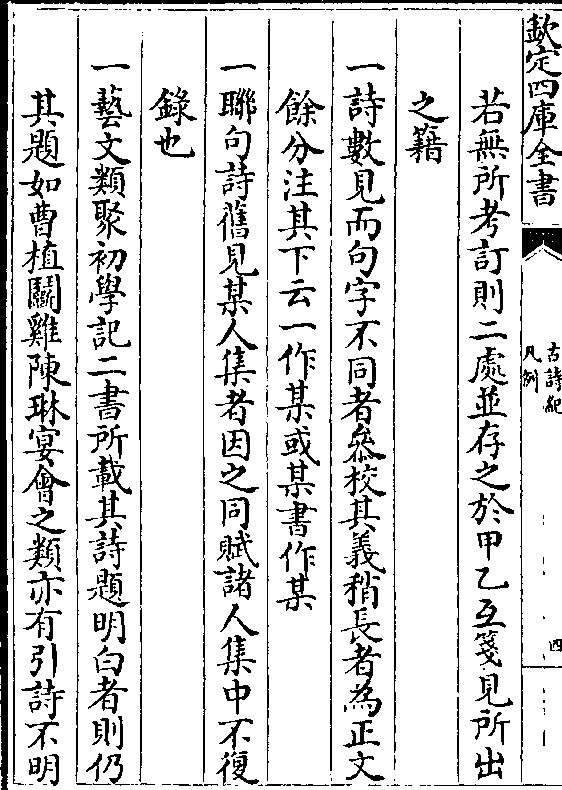 欽定四庫全書
古詩紀
凡例
四
若無所考訂則二處並存之於甲乙互箋見所出
之籍
一詩數見而句字不同者叅校其義稍長者為正文
餘分注其下云一作某或某書作某
一聯句詩舊見某人集者因之同賦諸人集中不復
錄也
一藝文類聚初學記二書所載其詩題明白者則仍
其題如曹植鬬雞陳琳宴會之類亦有引詩不明